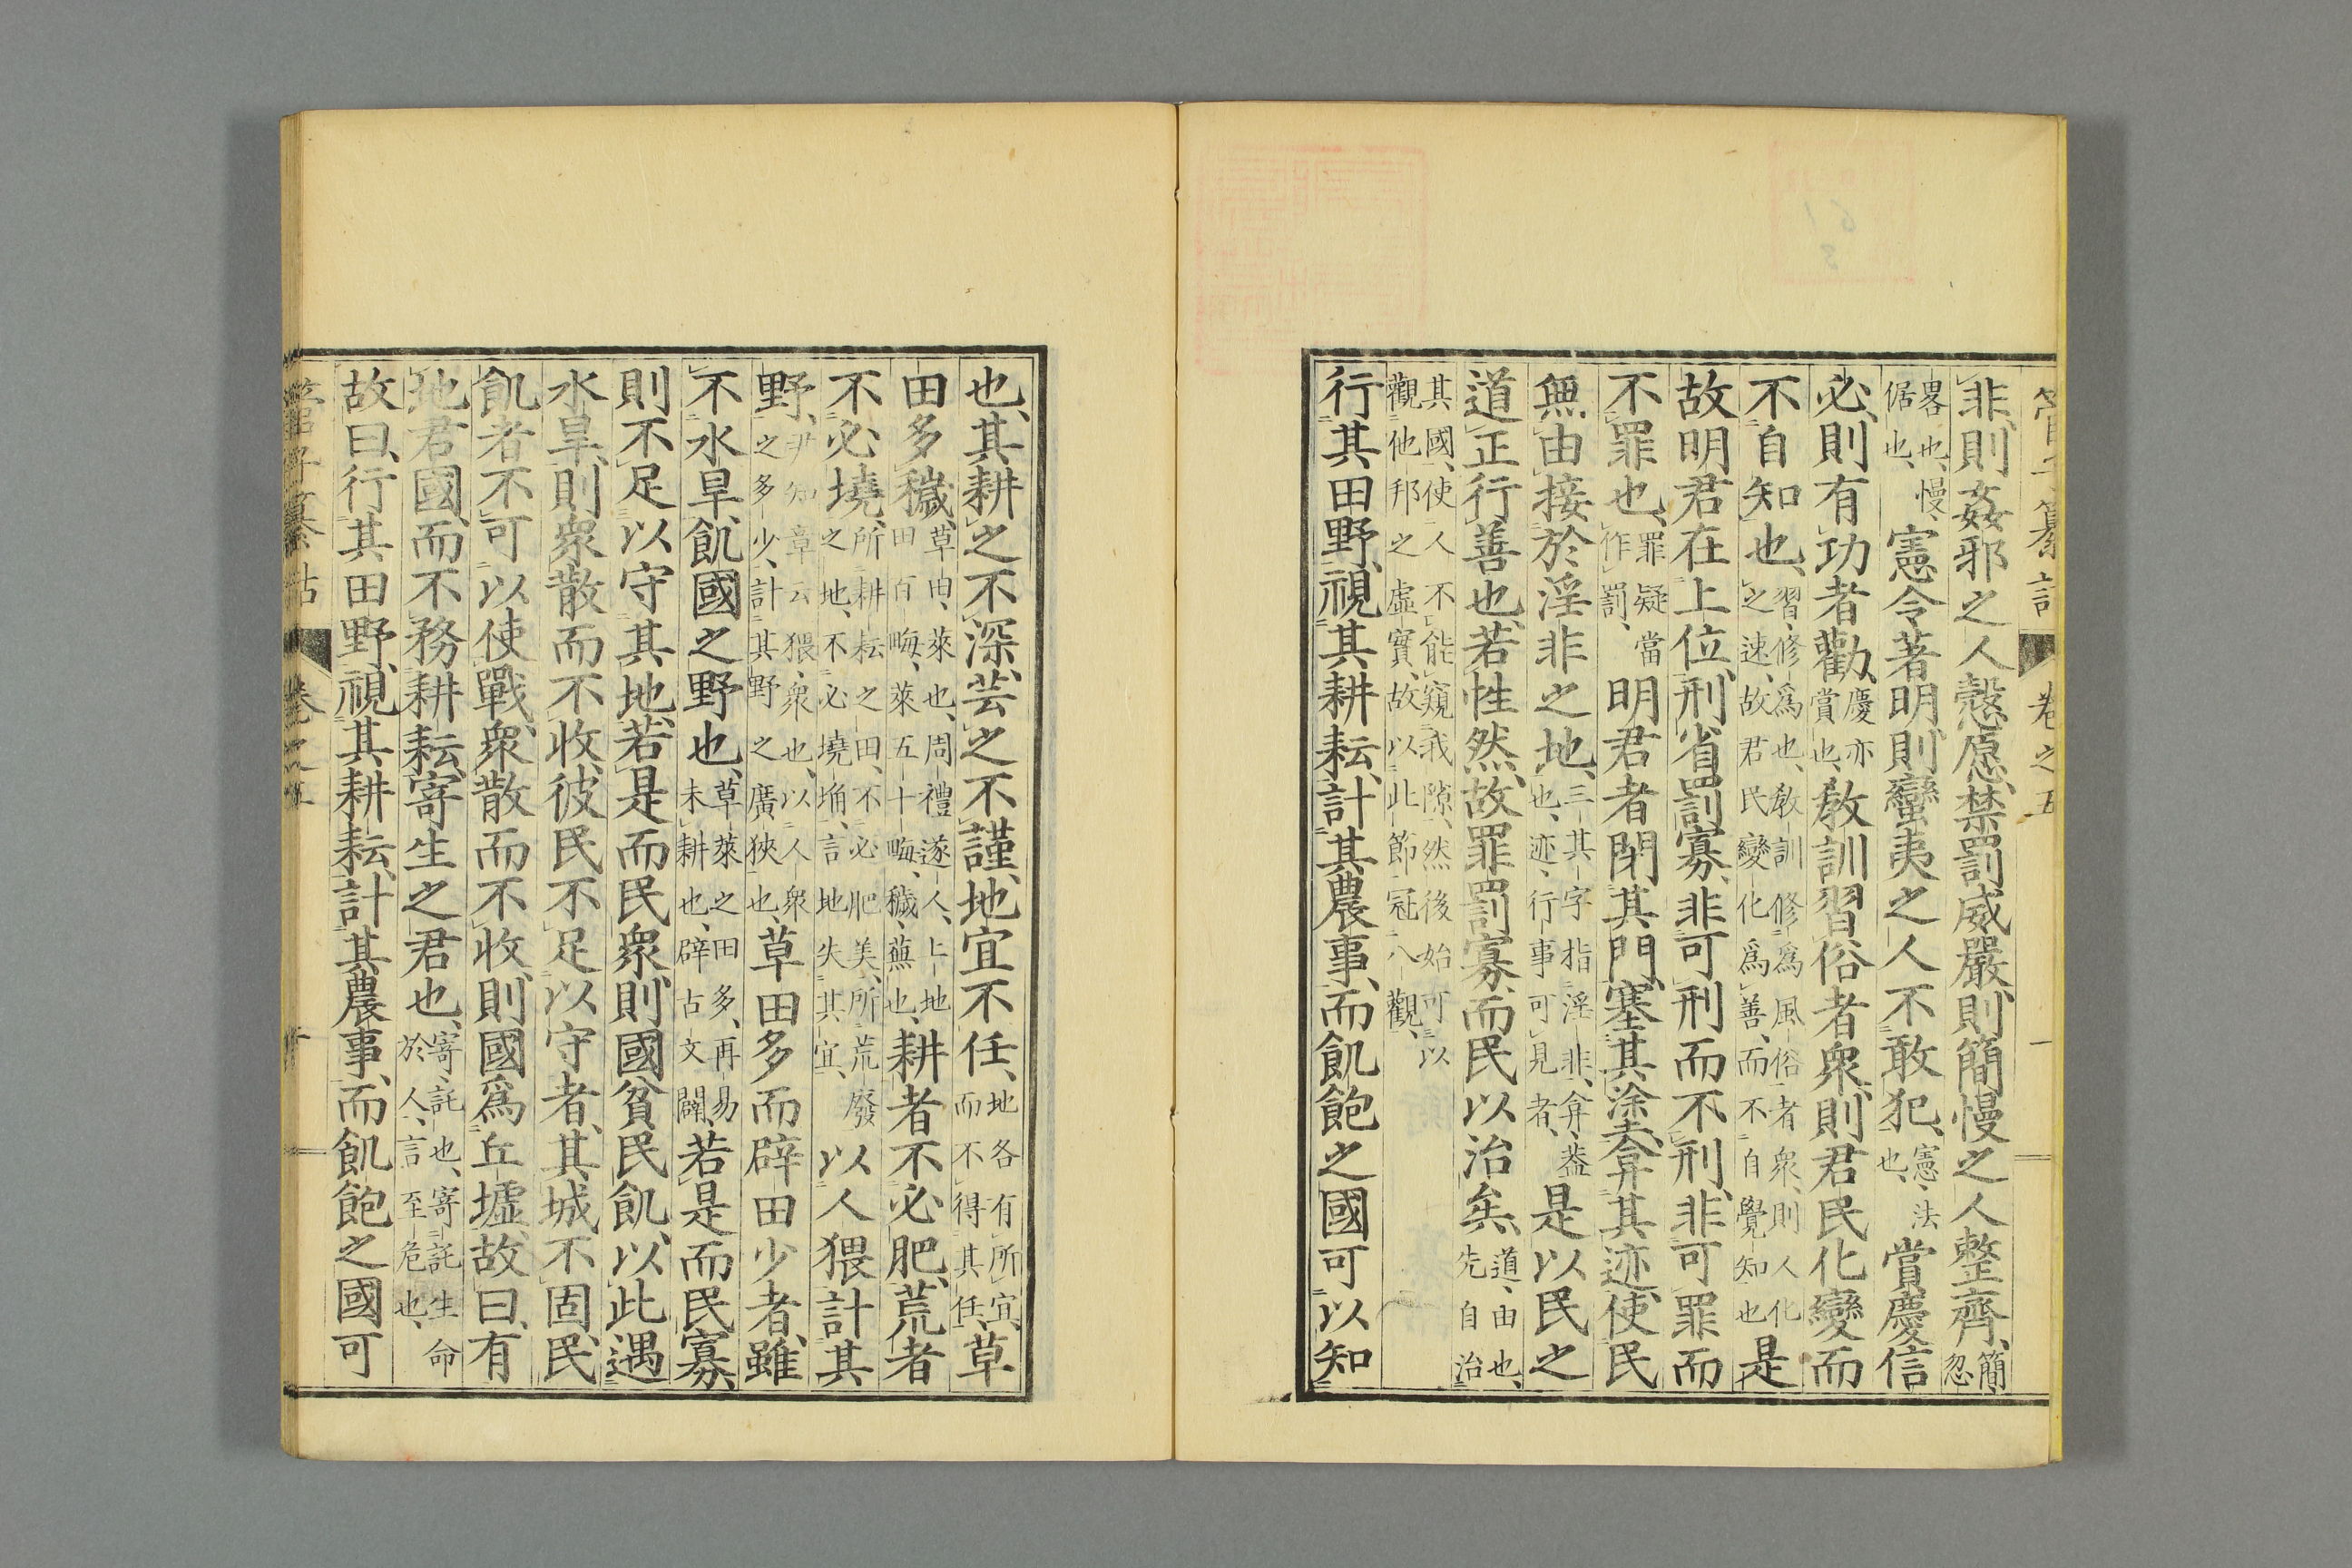 管子纂詁 卷之五 一
非、則姦邪之人愨愿、禁罰威嚴、則簡慢之人整齊、簡忽
畧也、慢、倨也、憲令著明、則蠻夷之人不敢犯、憲、法也、賞慶信
必、則有功者勸、慶亦賞也、教訓習俗者衆、則君民化變而
不自知也、習、修爲也、教訓修爲風俗者衆、則人化之速、故君民變化爲善、而不自覺知也是
故明君在上位、刑省罰寡、非可刑而不刑、非可罪而
不罪也、罪疑當作罰、明君者閉其門、塞其涂、弇其迹、使民
無由接於淫非之地、三其字指淫非、弇、蓋也、迹、行事可見者、是以民之
道正行善也、若性然、故罪罰寡、而民以治矣、道、由也、先自治
其國、使人不能窺我隙、然後始可以觀他邦之虛實、故以此節冠八觀、
行其田野、視其耕耘、計其農事、而飢飽之國可以知
也、其耕之不深、芸之不謹、地宜不任、地各有所宜、而不得其任、草
田多穢、草田、萊也、周禮遂人、上地田百畮、萊五十畮、穢、蕪也、耕者不必肥、荒者
不必墝、所耕耘之田、不必肥美、所荒廢之地、不必墝埆、言地失其宜、以人猥計其
野、尹知章云、猥、衆也、以人衆之多少、計其野之廣狹也、草田多而辟田少者、雖
不水旱、飢國之野也、草萊之田多、再易未耕也、辟古文闢、若是而民寡、
則不足以守其地、若是而民衆、則國貧民飢、以此遇
水旱、則衆散而不收、彼民不足以守者、其城不固、民
飢者不可以使戰、衆散而不收、則國爲丘墟、故曰、有
地君國、而不務耕耘、寄生之君也、寄、託也、寄託生命於人、言至危也、
故曰、行其田野、視其耕耘、計其農事、而飢飽之國可
管子纂詁 卷之五